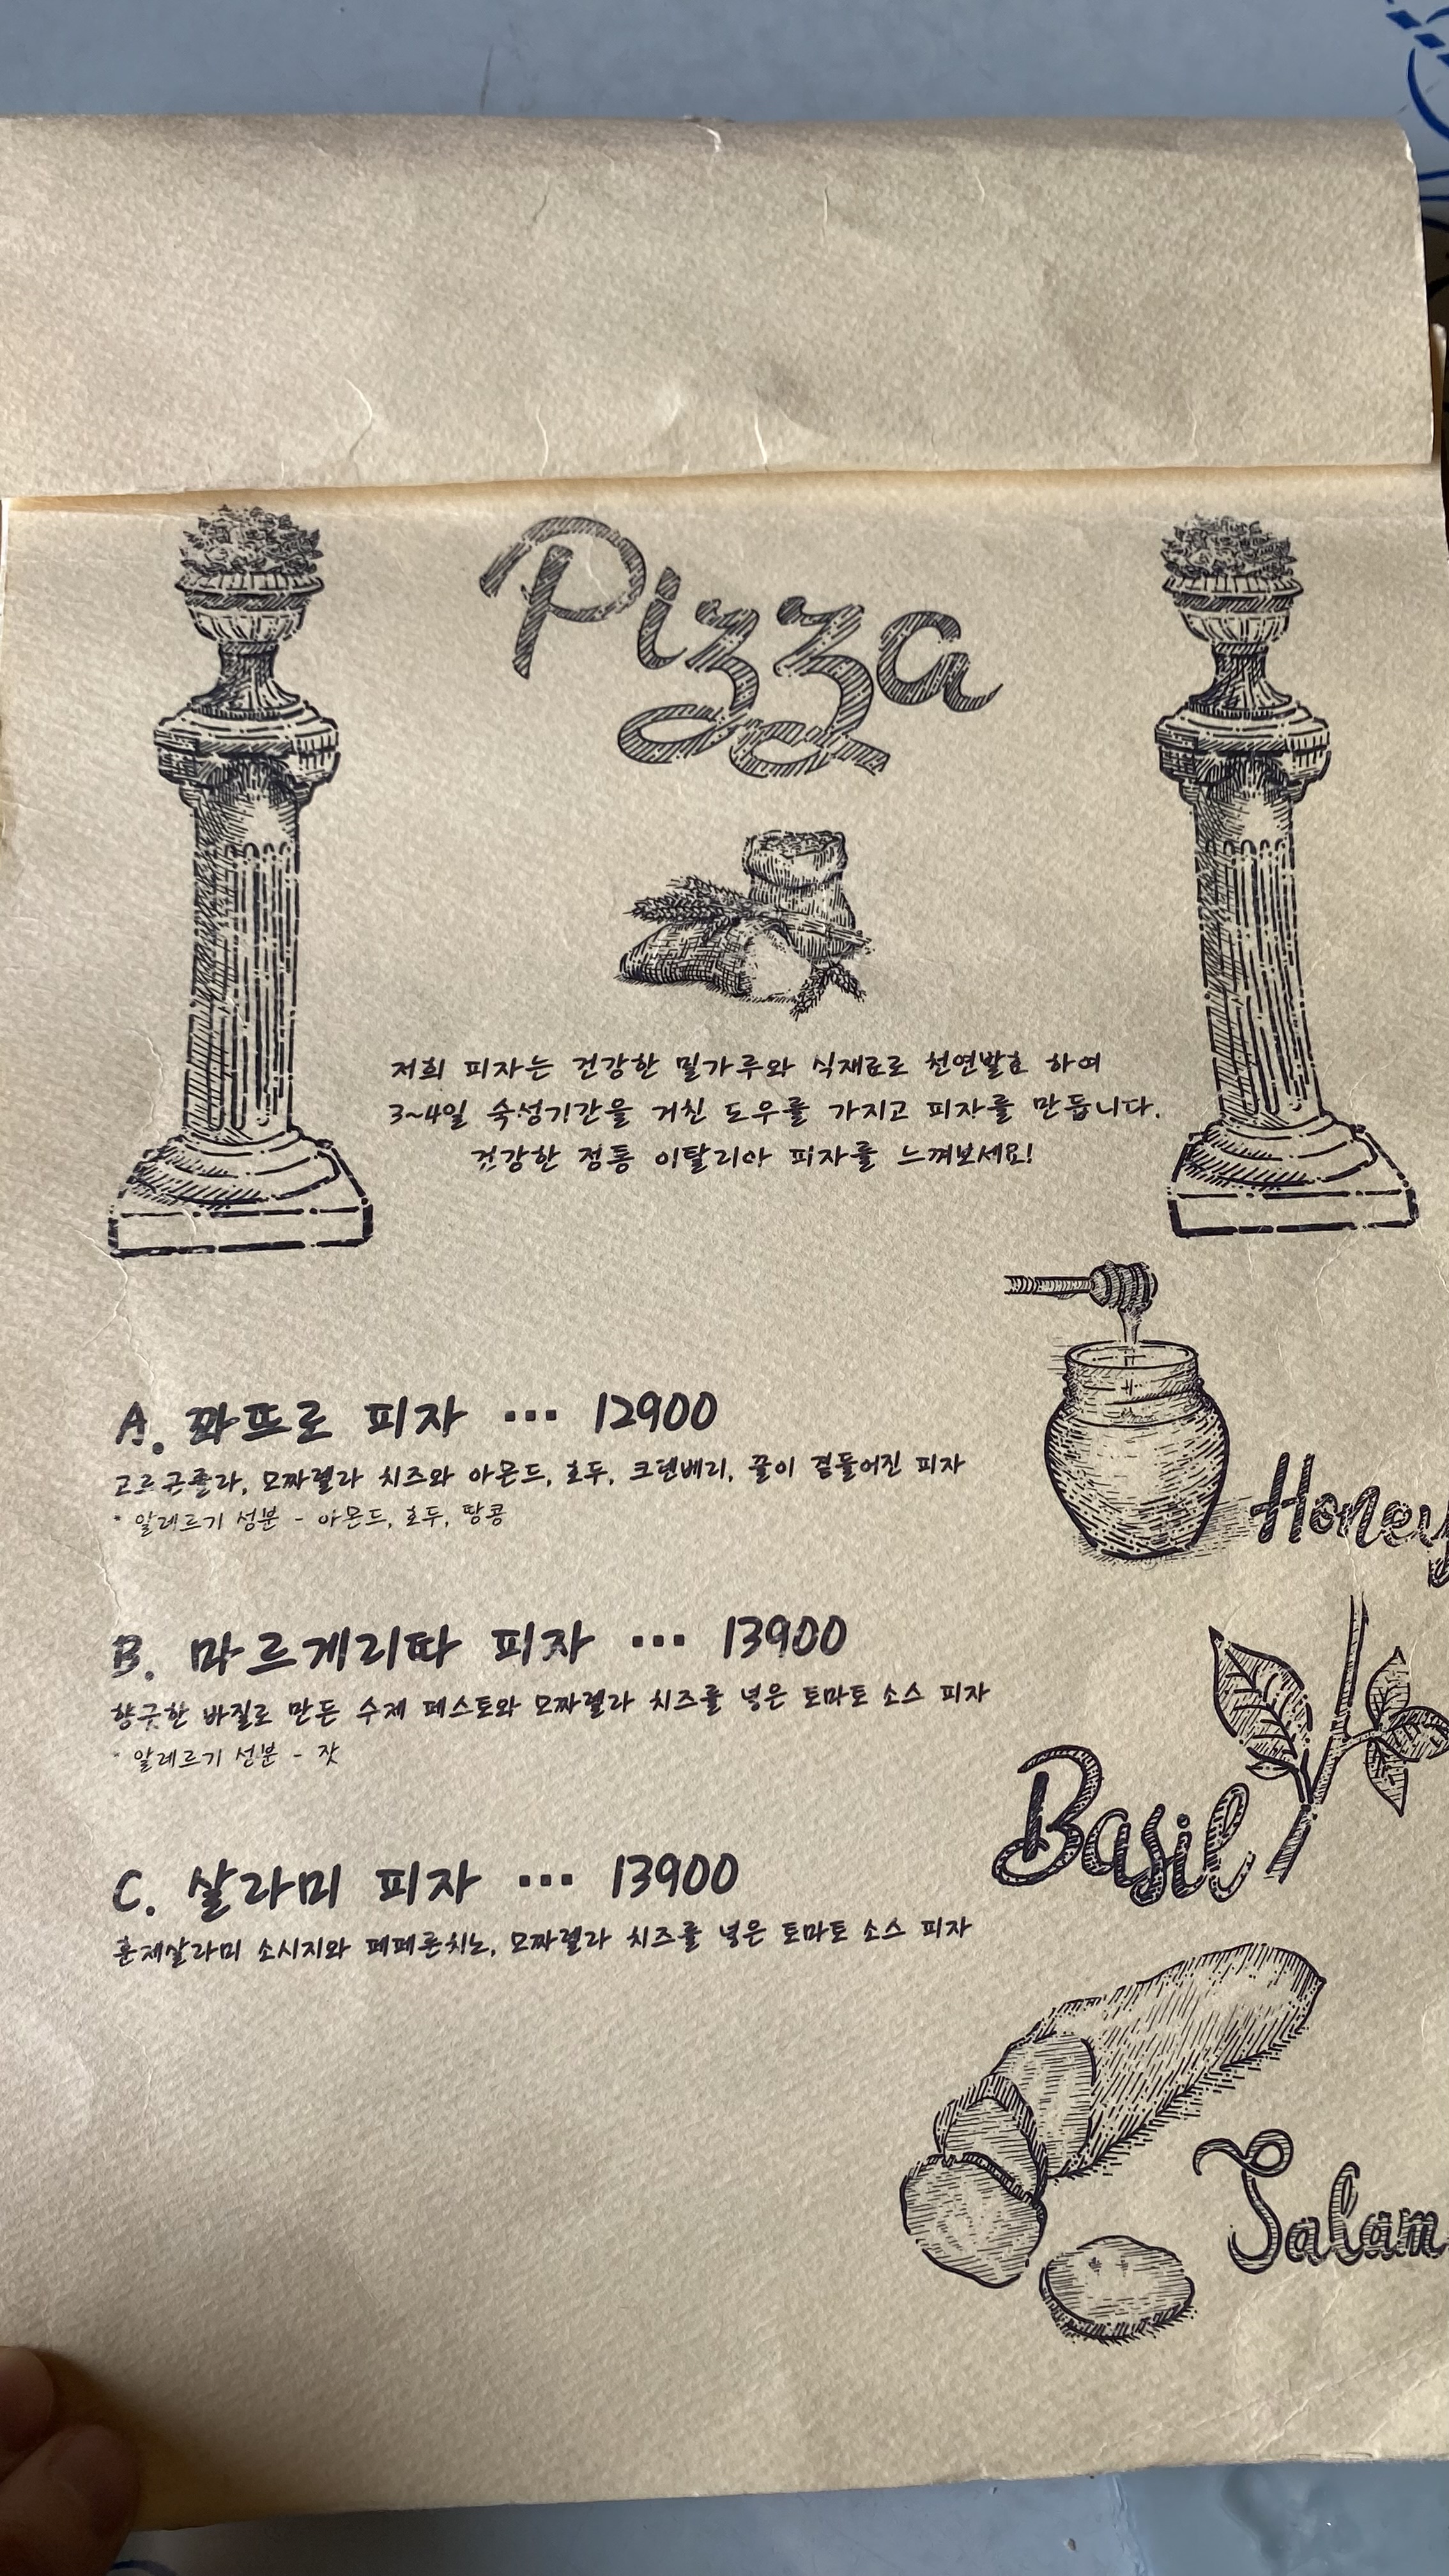 Pizza
저희 피자는 건강한 밀가루와 식재료로 천연발효 하여
3~4일 숙성기간을 거친 도우를 가지고 피자를 만듭니다.
건강한 정통 이탈리아 피자를 느껴보세요!
A. 꽈뜨로 피자 ... 12900
고르곤졸라, 모짜렐라 치즈와 아몬드, 호두, 크랜베리, 꿀이 곁들어진 피자
* 알레르기 성분 - 아몬드, 호두, 땅콩
Honey
B. 마르게리따 피자 ... 13900
향긋한 바질로 만든 수제 페스토와 모짜렐라 치즈를 넣은 토마토 소스 피자
* 알레르기 성분 - 잣
Basil
C. 살라미 피자 ... 13900
훈제살라미 소시지와 페페론치노, 모짜렐라 치즈를 넣은 토마토 소스 피자
Salam